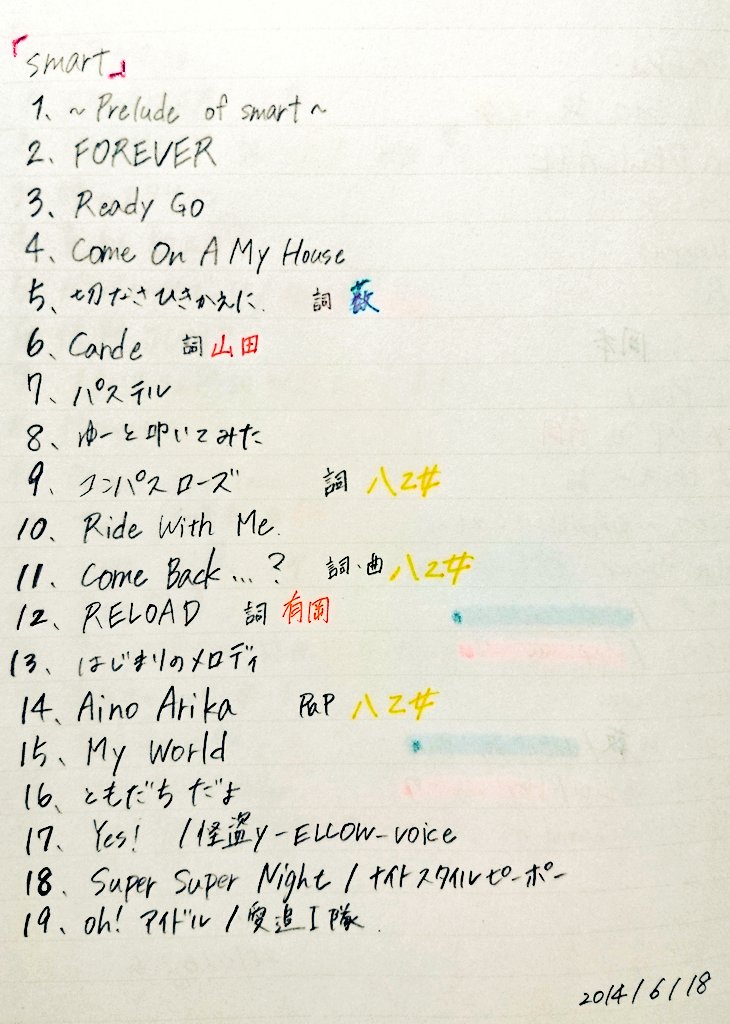 「smart」
1、~Prelude of smart~
2、FOREVER
3、Ready Go
4、Come On A My House
5、切なさひきかえに 詞 薮
6、Cande 詞 山田
7、パステル
8、ゆーと叩いてみた
9、コンパスローズ 詞 八乙女
10、Ride With Me
11、Come Back...? 詞・曲 八乙女
12、RELOAD 詞 有岡
13、はじまりのメロディ
14、Aino Arika RaP 八乙女
15、My World
16、ともだちだよ
17、Yes! /怪盗y-ELLOW-voice
18、Super Super Night/ナイトスタイルピーポー
19、oh! アイドル/愛追I隊
2014/6/18